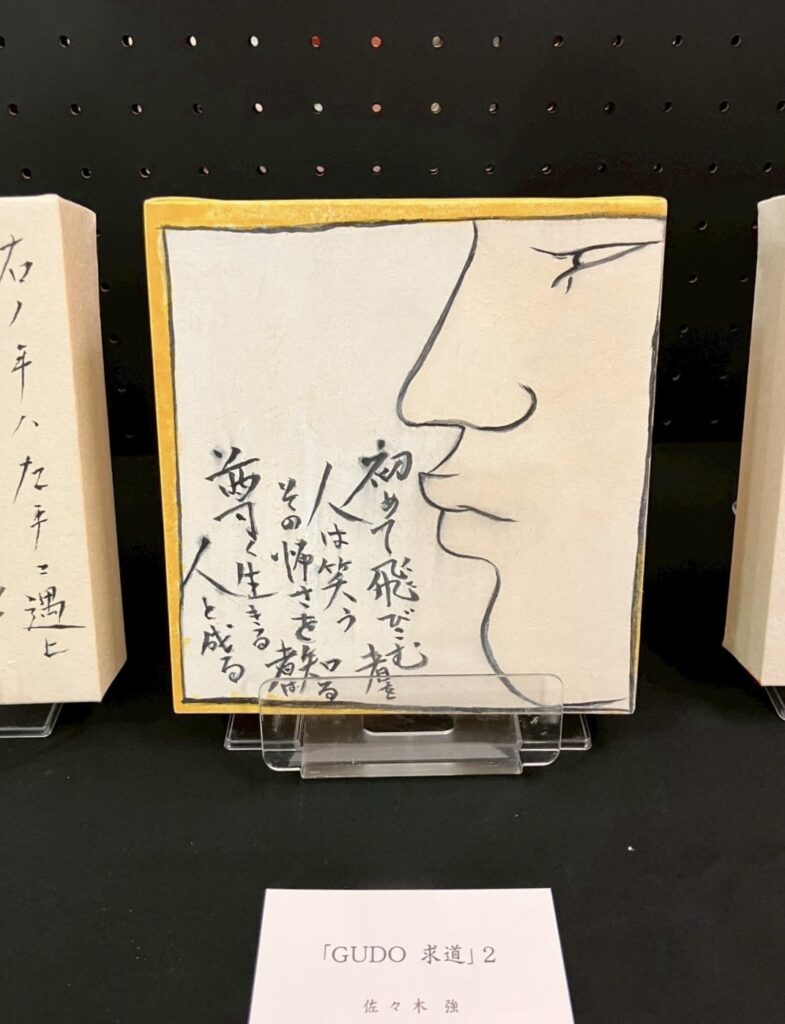 初めて飛びこむ者を
人は笑う
その怖さを知る
者は
尊く生きる
人と成る
右ノ年ハ左手ニ遇ヒ
「GUDO 求道」2
佐々木 強